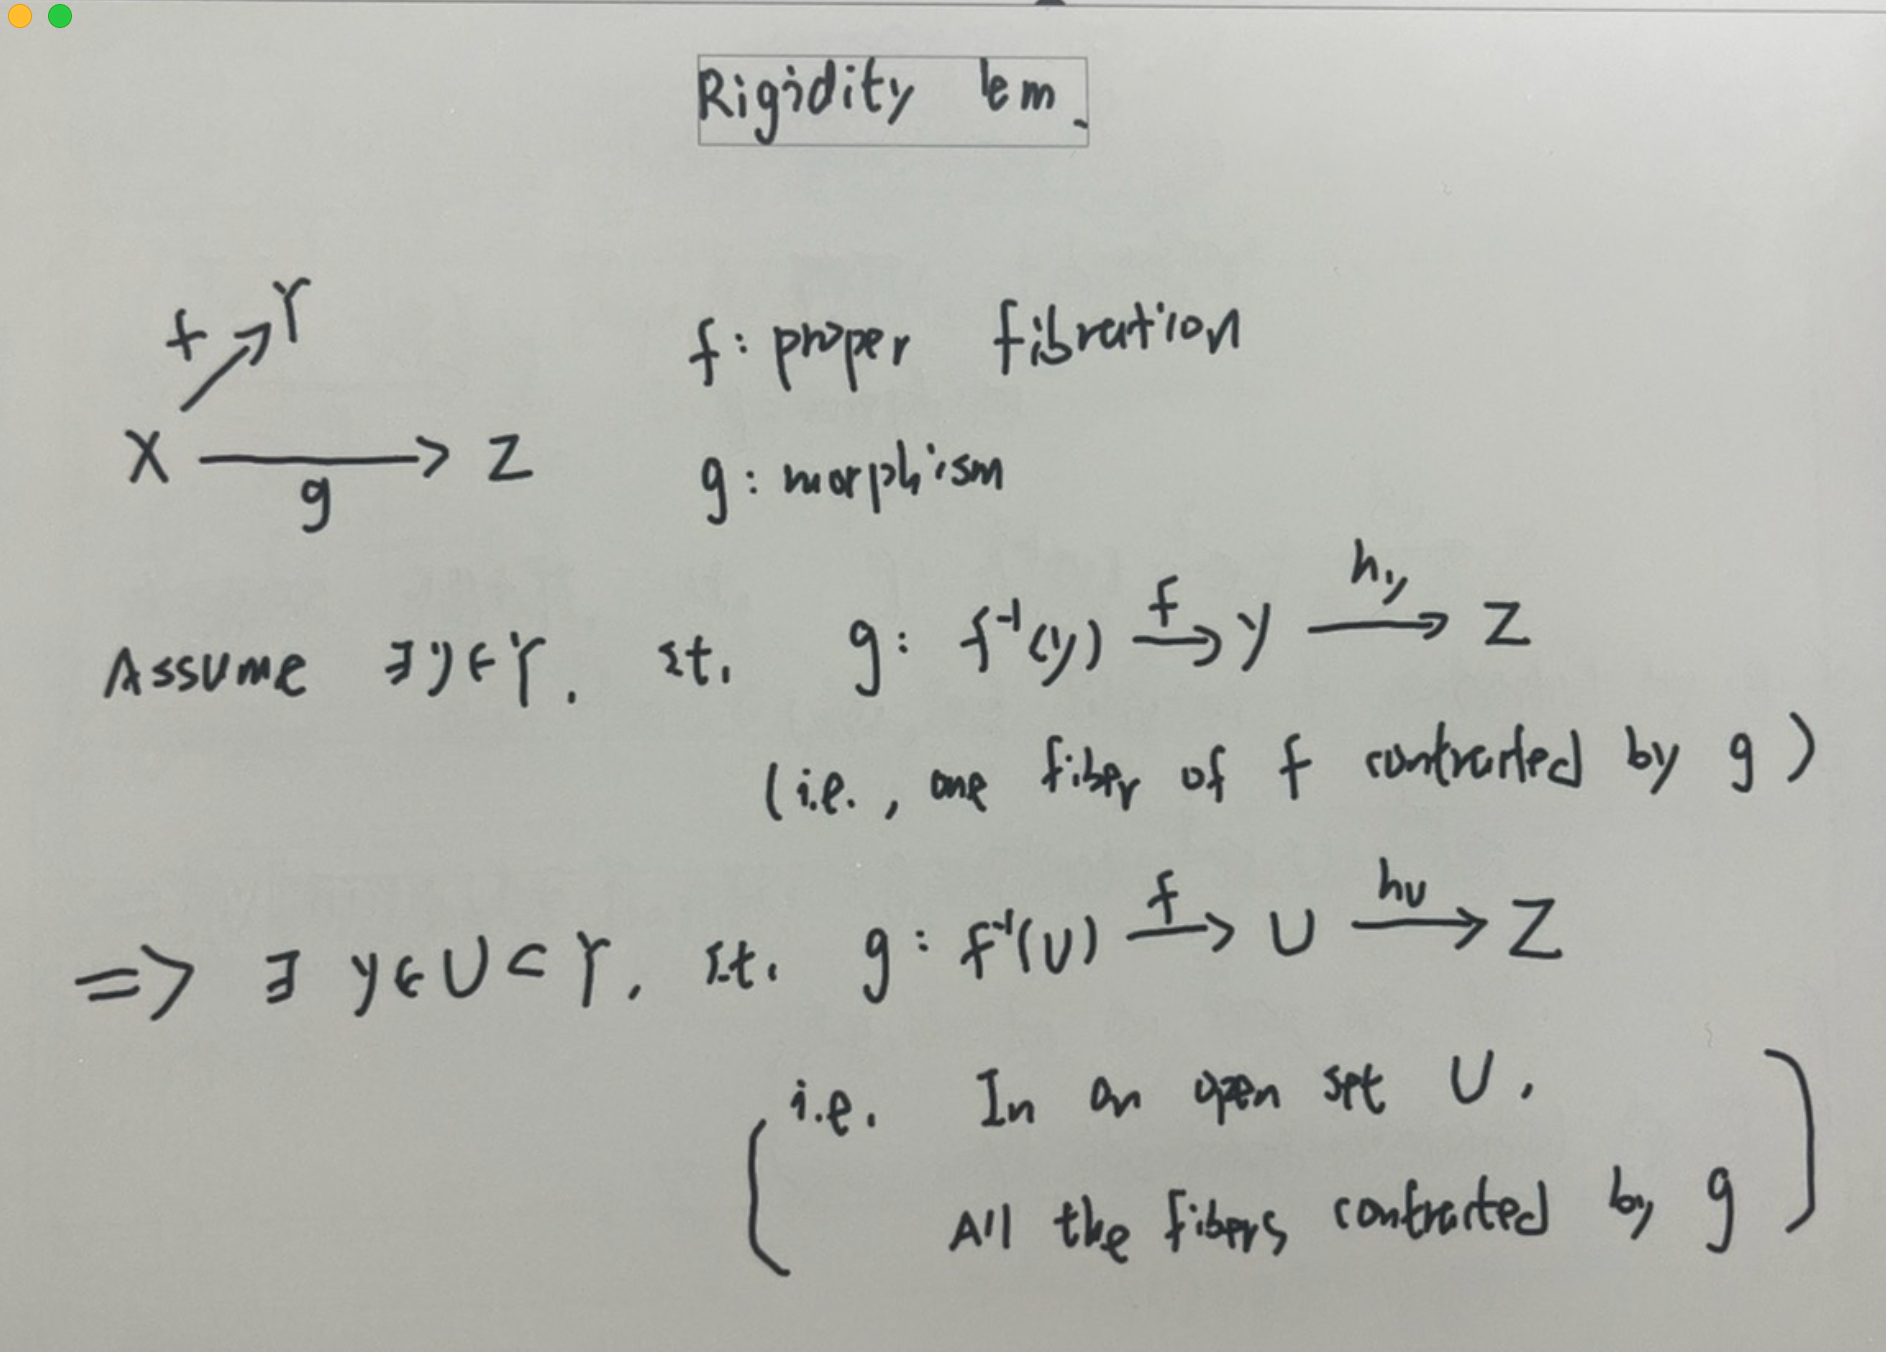 Rigidity lem.
f Y
X → Z
g
f : proper fibration
g : morphism
Assume ∃ y ∈ Y, s.t. g : f⁻¹(y) →^f y →^{h_y} Z
(i.e., one fiber of f contracted by g)
⇒ ∃ y ∈ U ⊂ Y, s.t. g : f⁻¹(U) →^f U →^{h_U} Z
(i.e. In an open set U,
All the fibers contracted by g)